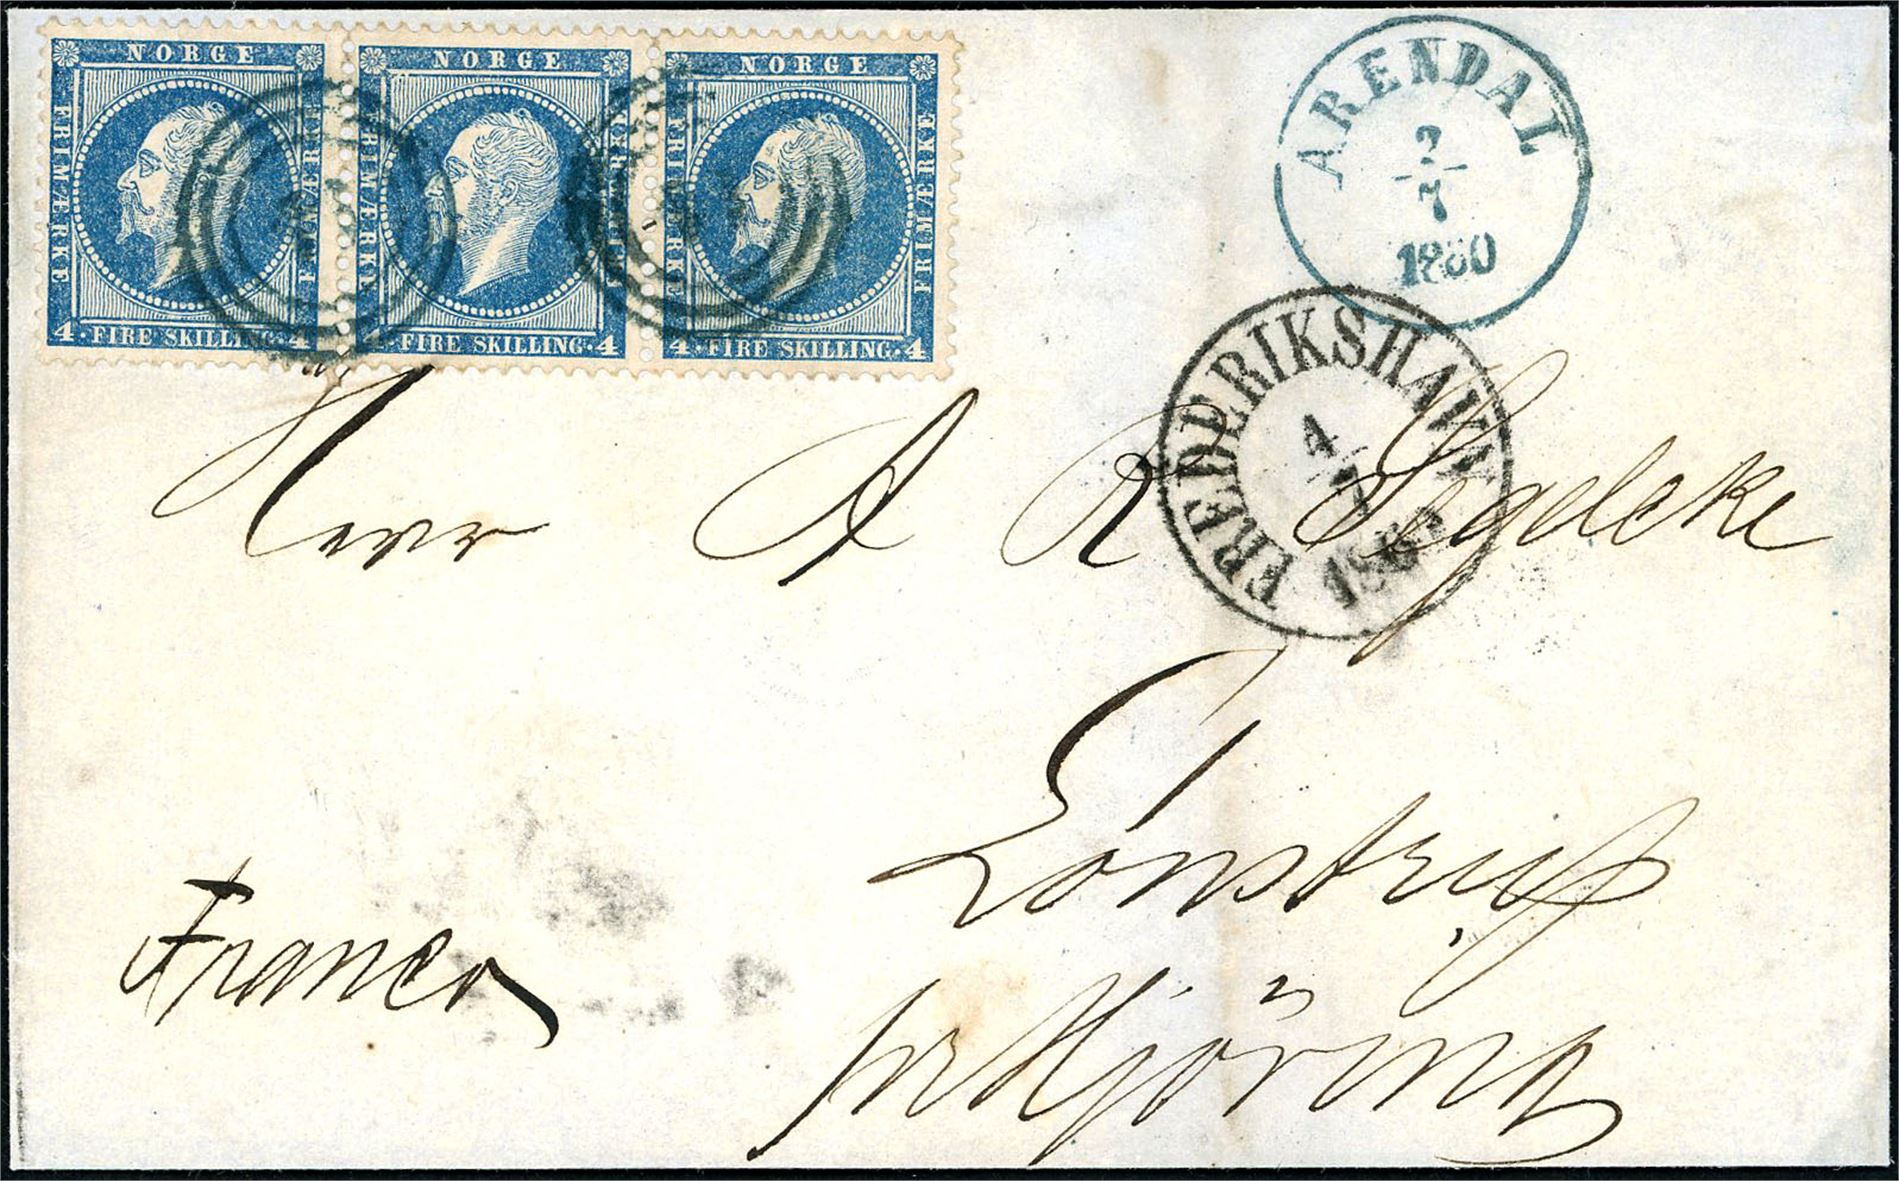 NORGE
FRIMÆRKE FRIMÆRKE
4 · FIRE SKILLING · 4
NORGE
FRIMÆRKE FRIMÆRKE
4 · FIRE SKILLING · 4
NORGE
FRIMÆRKE FRIMÆRKE
4 · FIRE SKILLING · 4
ARENDAL
2/7
1860
FREDERIKSHAVN
4/7
1860
Herr A R
Lönstrup
pr Hjöring
Franco